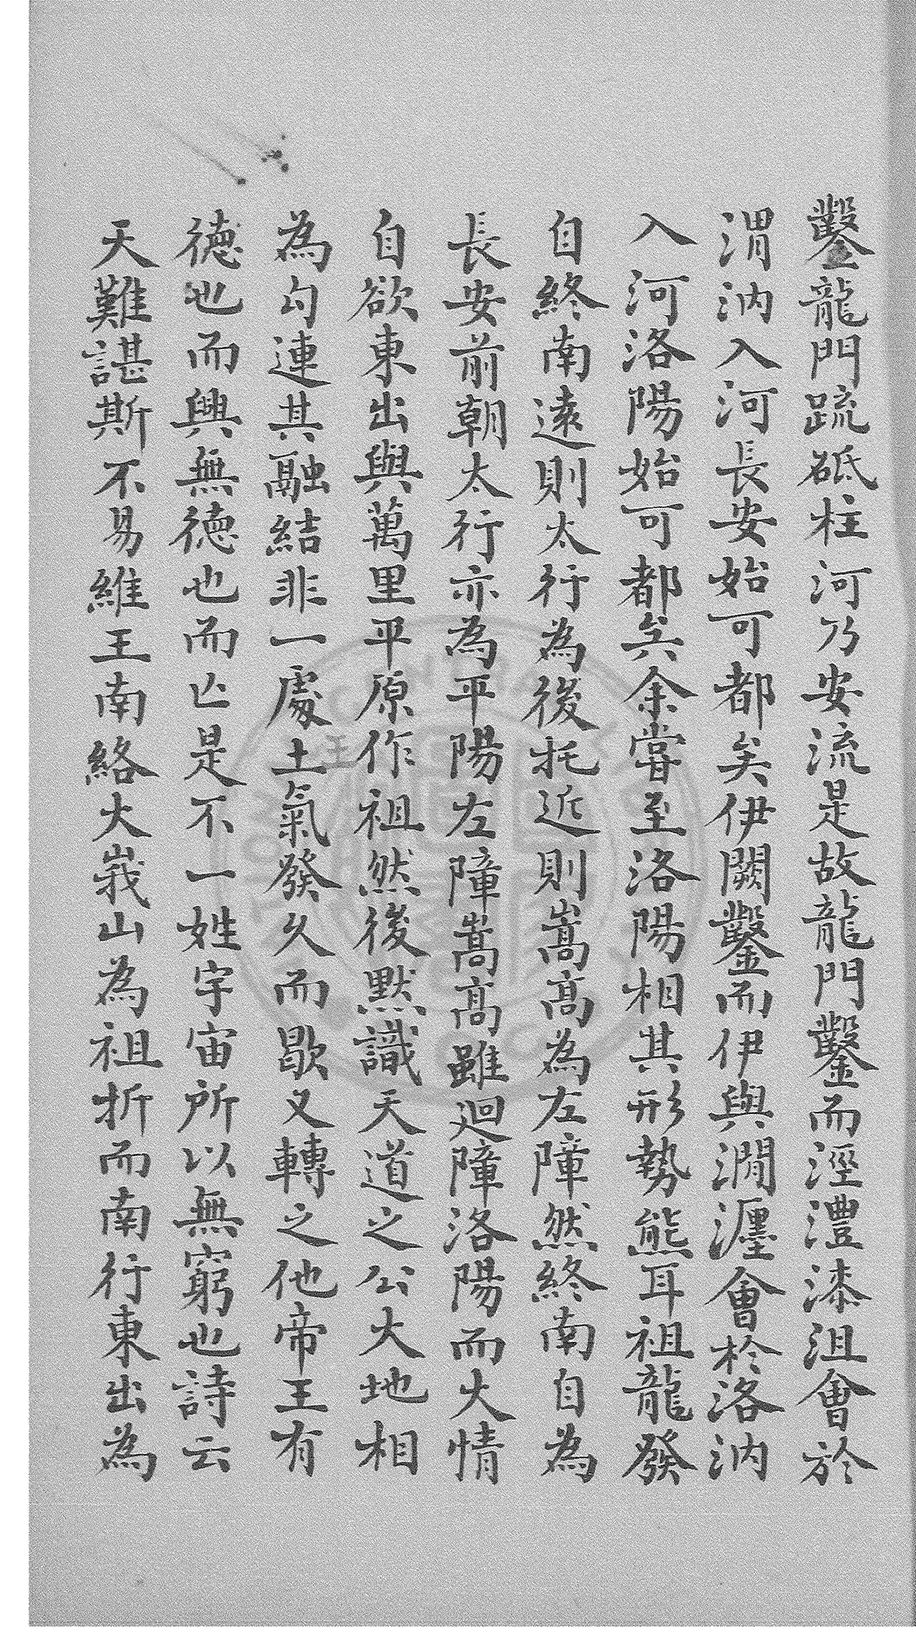 鑿龍門疏砥柱河乃安流是故龍門鑿而涇澧漆沮會於
渭汭入河長安始可都矣伊闕鑿而伊與澗瀍會於洛汭
入河洛陽始可都矣余嘗至洛陽相其形勢熊耳祖龍發
自終南遠則太行為後托近則嵩高為左障然終南自為
長安前朝太行亦為平陽左障嵩高雖迴障洛陽而大情
自欲東出與萬里平原作祖然後默識天道之公大地相
為勾連其融結非一處土氣發久而歇又轉之他帝王有
德也而興無德也而亡是不一姓宇宙所以無窮也詩云
天難諶斯不易維王南絡大峩山為祖折而南行東出為